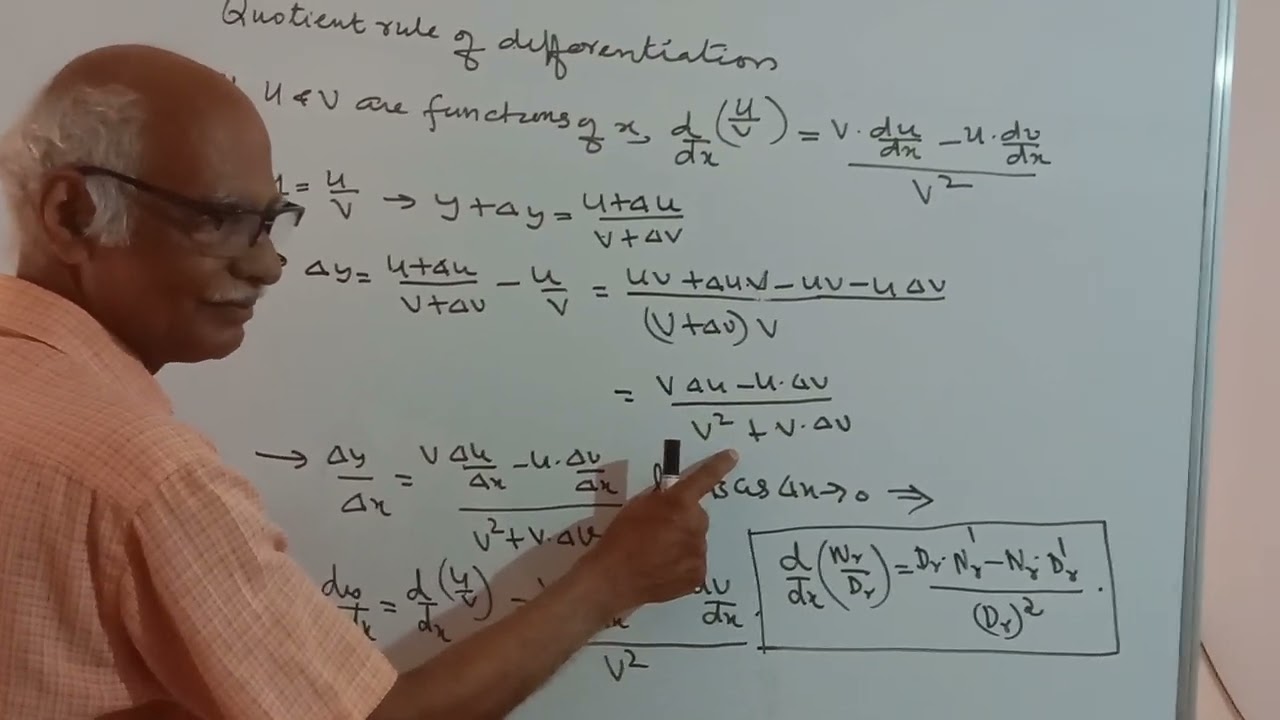 Quotient rule of differentiation
U & V are functions of x, d/dx (u/v) = (v · du/dx − u · dv/dx) / v²
= u/v → y + Δy = (u + Δu) / (v + Δv)
Δy = (u + Δu) / (v + Δv) − u/v = (uv + Δuv − uv − uΔv) / ((v + Δv) v)
= (v Δu − u · Δv) / (v² + v · Δv)
→ Δy/Δx = (v Δu/Δx − u · Δv/Δx) / (v² + v · Δv) as Δx → 0 ⇒
= d/dx (u/v) dv/dx / v²
d/dx (Nr/Dr) = (Dr · Nr' − Nr · Dr') / (Dr)² .